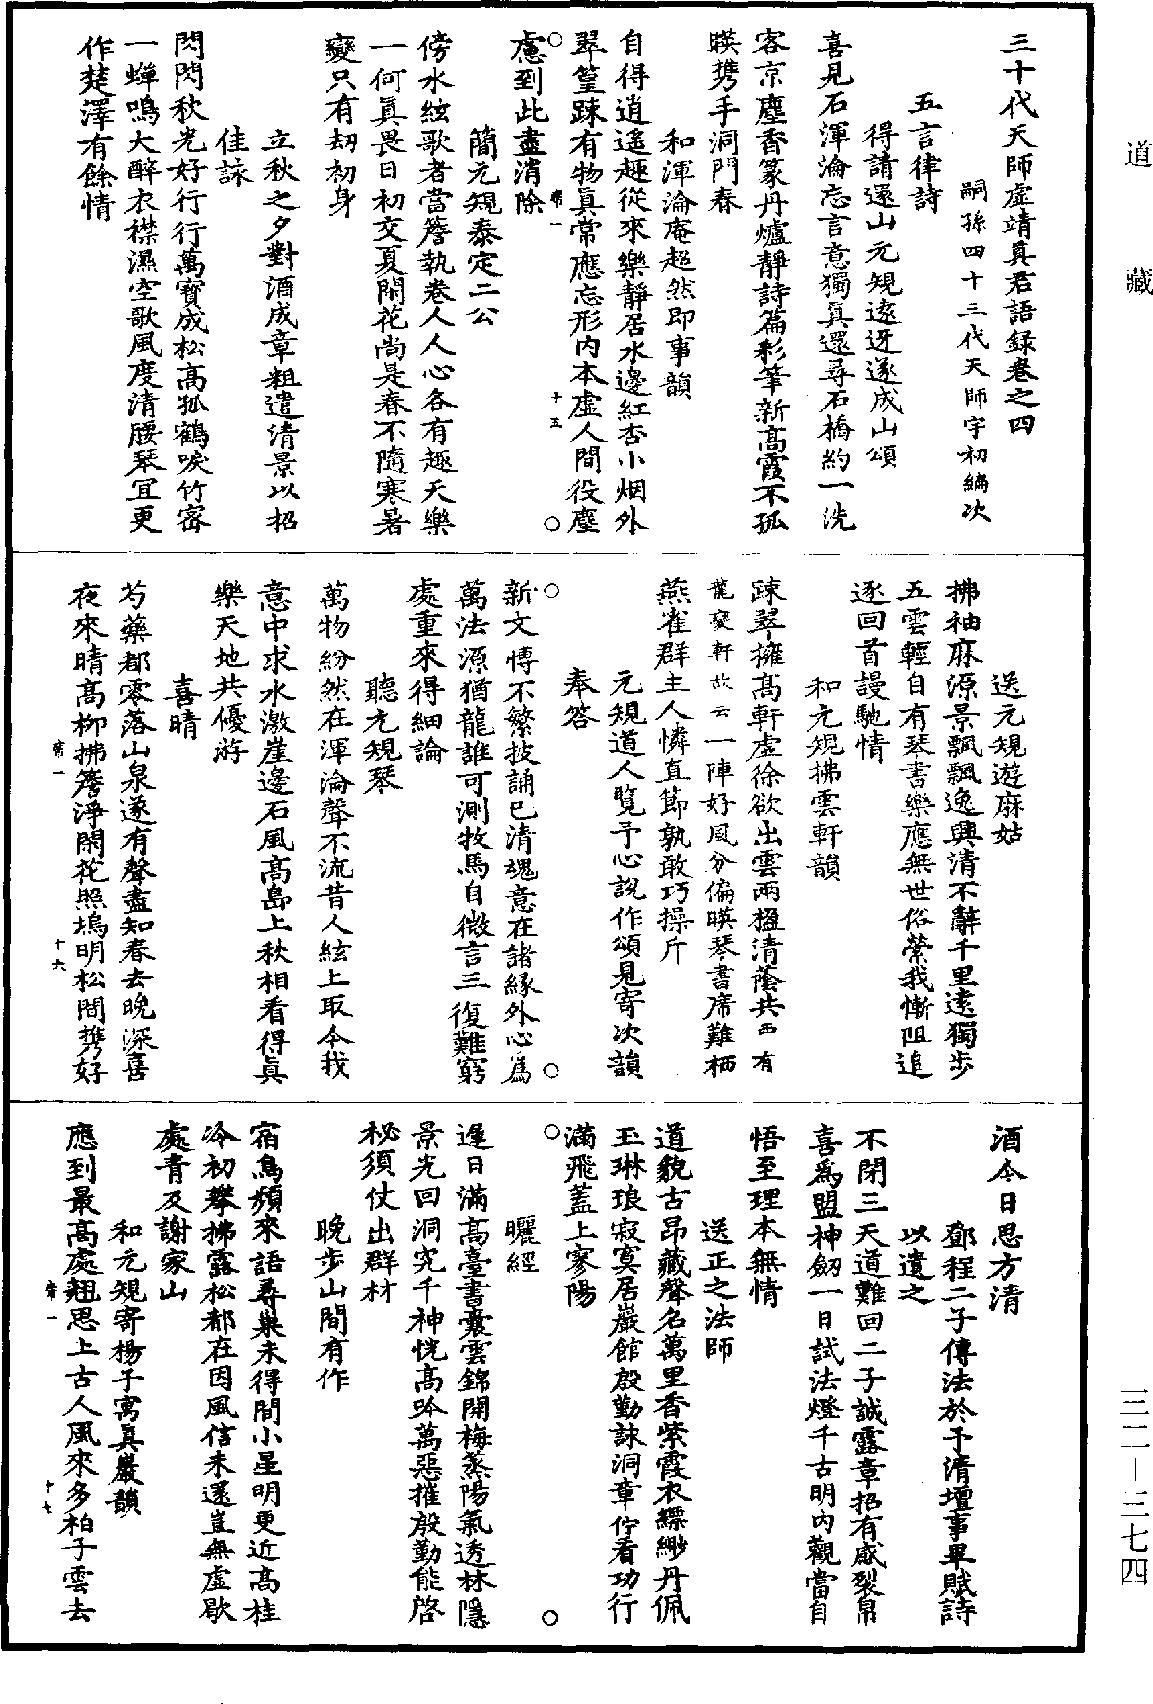 道藏
三十代天師虛靖真君語録卷之四
嗣孫四十三代天師宇初編次
五言律詩
得請還山元規遠迓遂成山頌
喜見石渾淪忘言意獨真還尋石橋約一洗
客京塵香篆丹爐靜詩篇彩筆新高霞不孤
暎携手洞門春
和渾淪庵超然即事韻
自得逍遥趣從來樂靜居水邊紅杏小烟外
翠篁踈有物真常應忘形内本虛人間役塵
席一
十五
慮到此盡消除
簡元規泰定二公
傍水絃歌者當簷執卷人人心各有趣天樂
一何真畏日初交夏閑花尚是春不隨寒暑
變只有劫初身
立秋之夕對酒成章粗遣清景以招
佳詠
閃閃秋光好行行萬寶成松高孤鶴唳竹密
一蟬鳴大醉衣襟濕空歌風度清腰琴宜更
作楚澤有餘情
送元規遊麻姑
拂袖麻源景飄飄逸興清不辭千里遠獨步
五雲輕自有琴書樂應無世俗縈我慚阻追
逐回首謾馳情
和元規拂雲軒韻
踈翠擁高軒虛徐欲出雲兩楹清蔭共西有
龍變軒故云一陣好風分偏暎琴書席難栖
燕雀群主人憐直節孰敢巧操斤
元規道人覽予心說作頌見寄次韻
奉答
新文愽不繁披誦已清魂意在諸緣外心爲
萬法源猶龍誰可測牧馬自微言三復難窮
處重來得細論
聽元規琴
萬物紛然在渾淪聲不流昔人絃上取今我
意中求水激崖邊石風高島上秋相看得真
樂天地共優游
喜晴
芍藥都零落山泉遂有聲盡知春去晚深喜
夜來晴高柳拂簷淨閑花照塢明松間携好
席一
十六
酒今日思方清
鄧程二子傳法於予清壇事畢賦詩
以遺之
不閉三天道難回二子誠露章招有感裂帛
喜爲盟神劒一日試法燈千古明内觀當自
悟至理本無情
送正之法師
道貌古昂藏聲名萬里香紫霞衣縹緲丹佩
玉琳琅寂寞居巖館殷勤誄洞章佇看功行
滿飛蓋上寥陽
曬經
遲日滿高臺書囊雲錦開梅蒸陽氣透林隱
景光回洞究千神恍高吟萬惡摧殷勤能啓
秘須仗出群材
晚步山間有作
宿鳥頻來語尋巢未得間小星明更近高桂
冷初攀拂露松都在因風信未還豈無虛歇
處青及謝家山
和元規寄楊子寓真巖韻
應到最高處翹思上古人風來多柏子雲去
席一
十七
三二—三七四